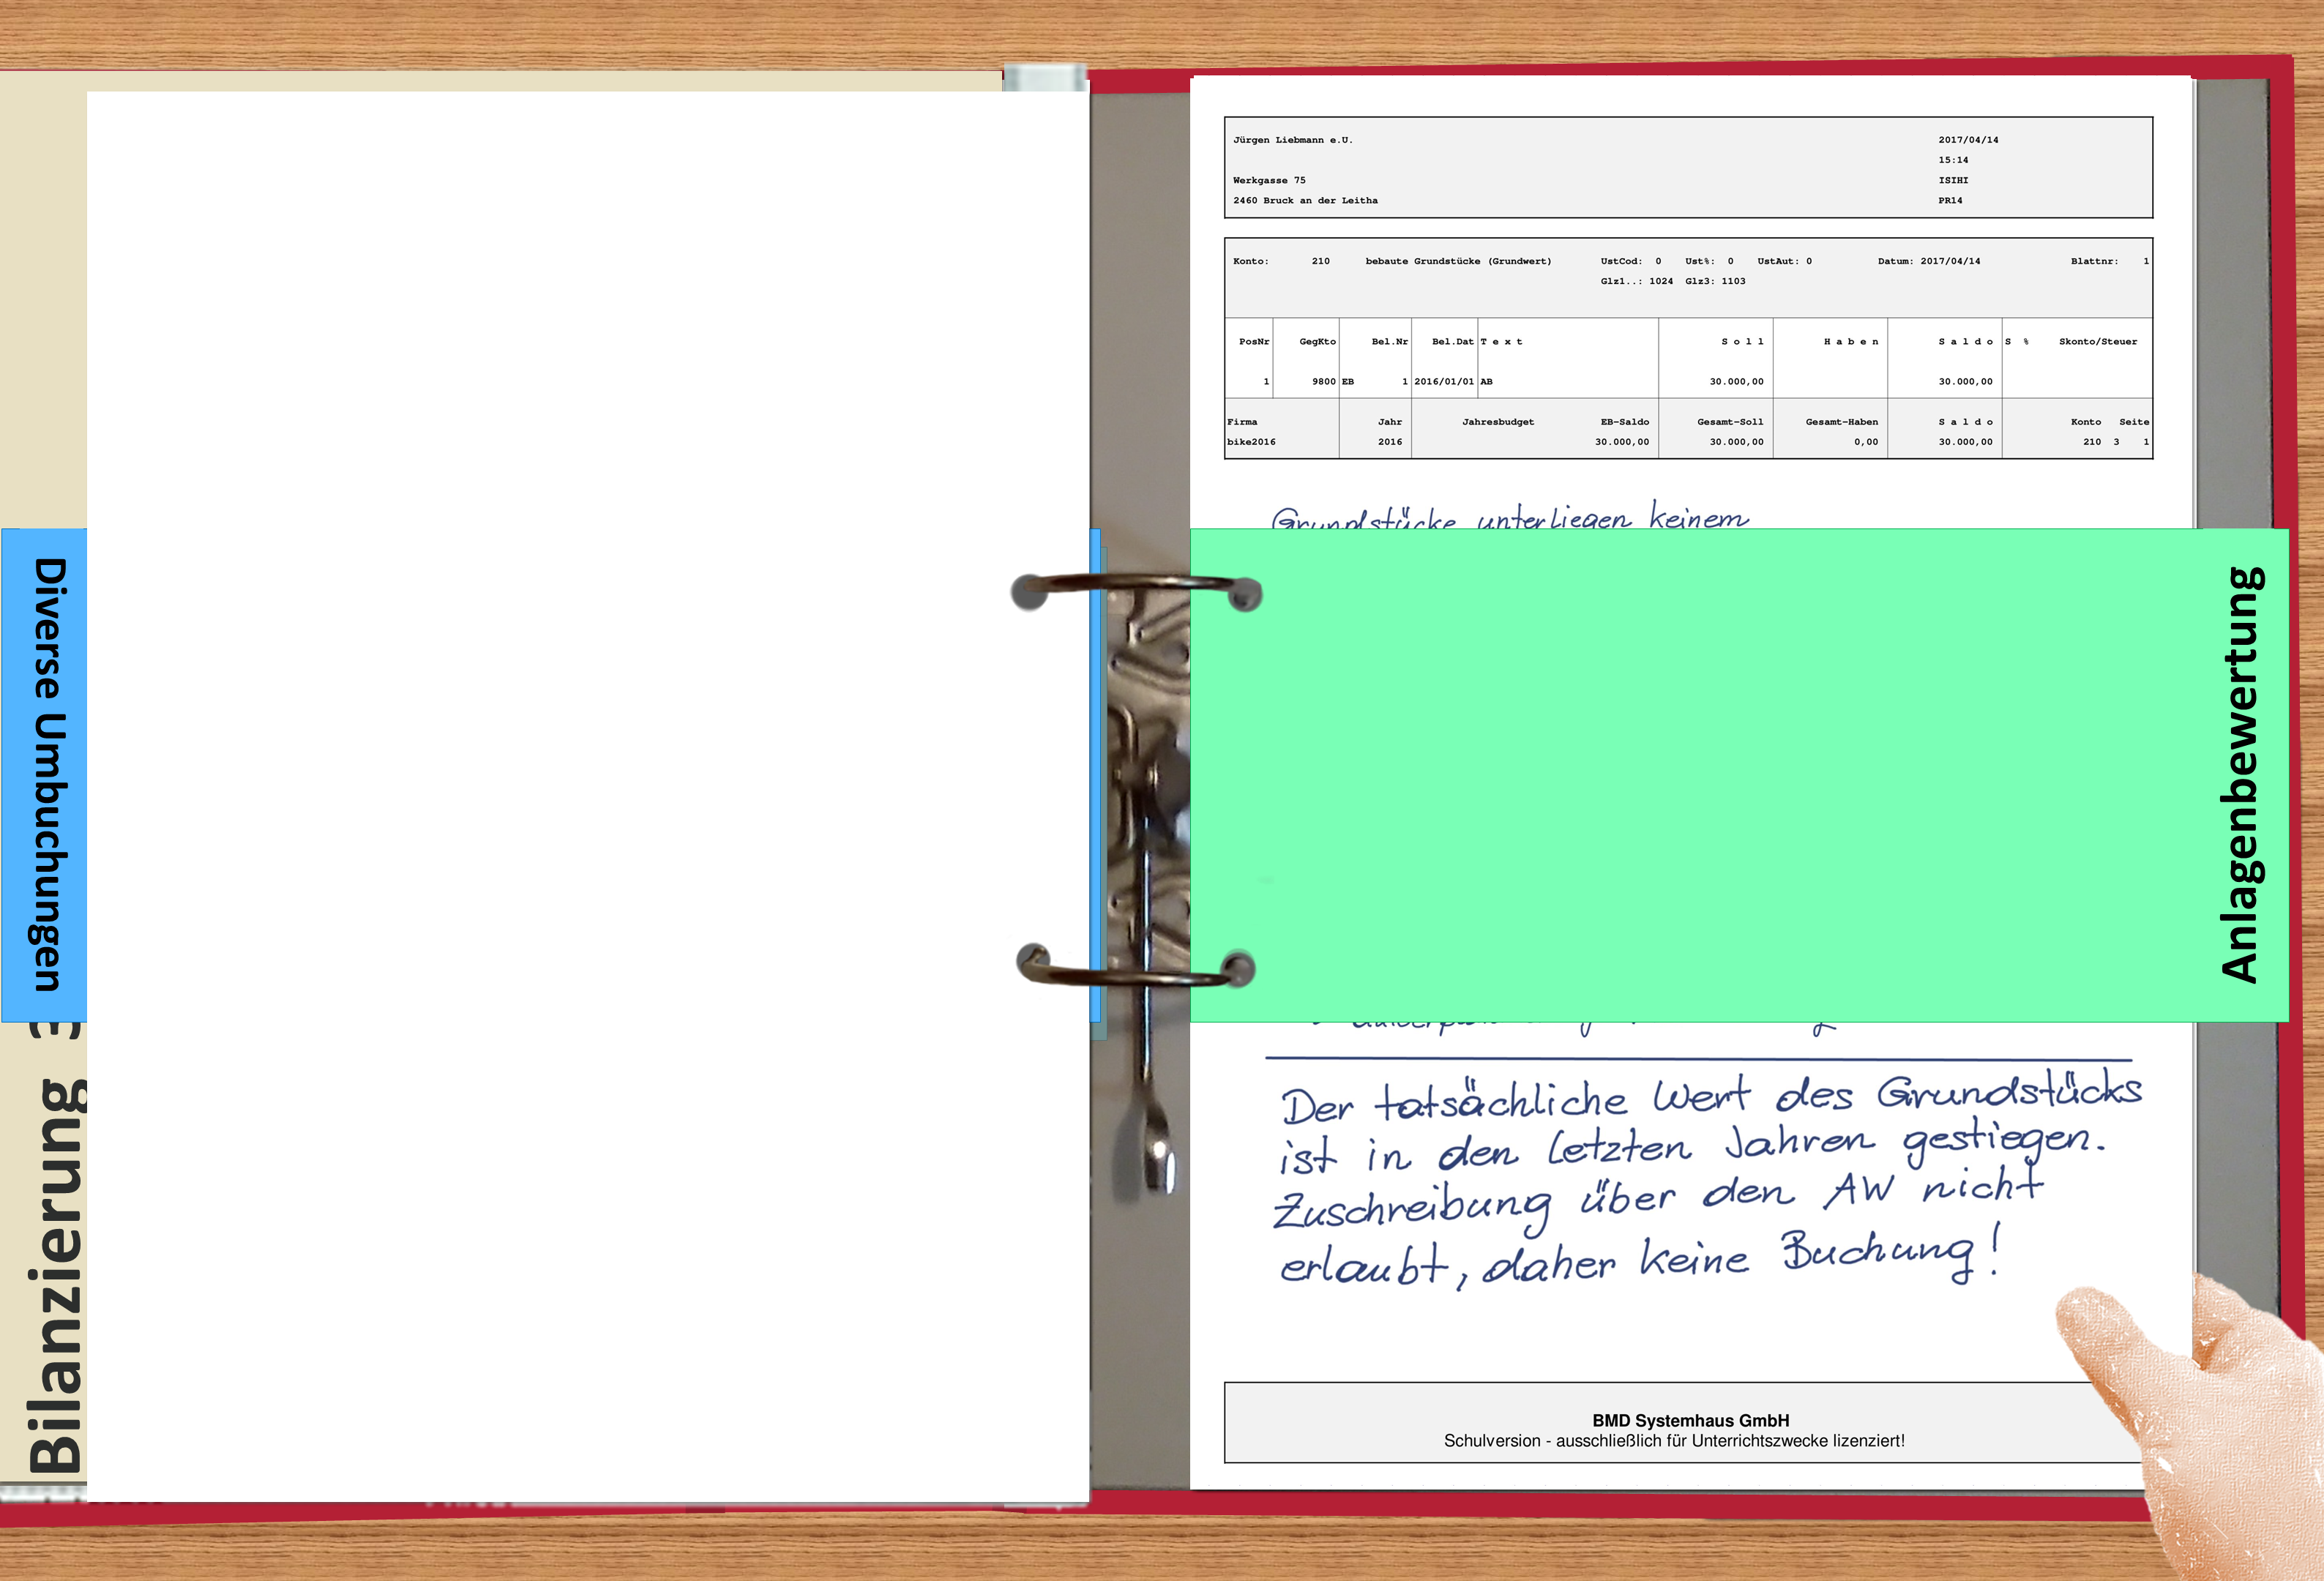 Diverse Umbuchungen
Bilanzierung
Jürgen Liebmann e.U. 2017/04/14
15:14
Werkgasse 75 ISIHI
2460 Bruck an der Leitha PR14
Konto: 210 bebaute Grundstücke (Grundwert) UstCod: 0 Ust%: 0 UstAut: 0 Datum: 2017/04/14 Blattnr: 1
Glz1..: 1024 Glz3: 1103
PosNr GegKto Bel.Nr Bel.Dat T e x t S o l l H a b e n S a l d o S % Skonto/Steuer
1 9800 EB 1 2016/01/01 AB 30.000,00 30.000,00
Firma Jahr Jahresbudget EB-Saldo Gesamt-Soll Gesamt-Haben S a l d o Konto Seite
bike2016 2016 30.000,00 30.000,00 0,00 30.000,00 210 3 1
Grundstücke unterliegen keinem
Anlagenbewertung
Der tatsächliche Wert des Grundstücks
ist in den letzten Jahren gestiegen.
Zuschreibung über den AW nicht
erlaubt, daher keine Buchung!
BMD Systemhaus GmbH
Schulversion - ausschließlich für Unterrichtszwecke lizenziert!